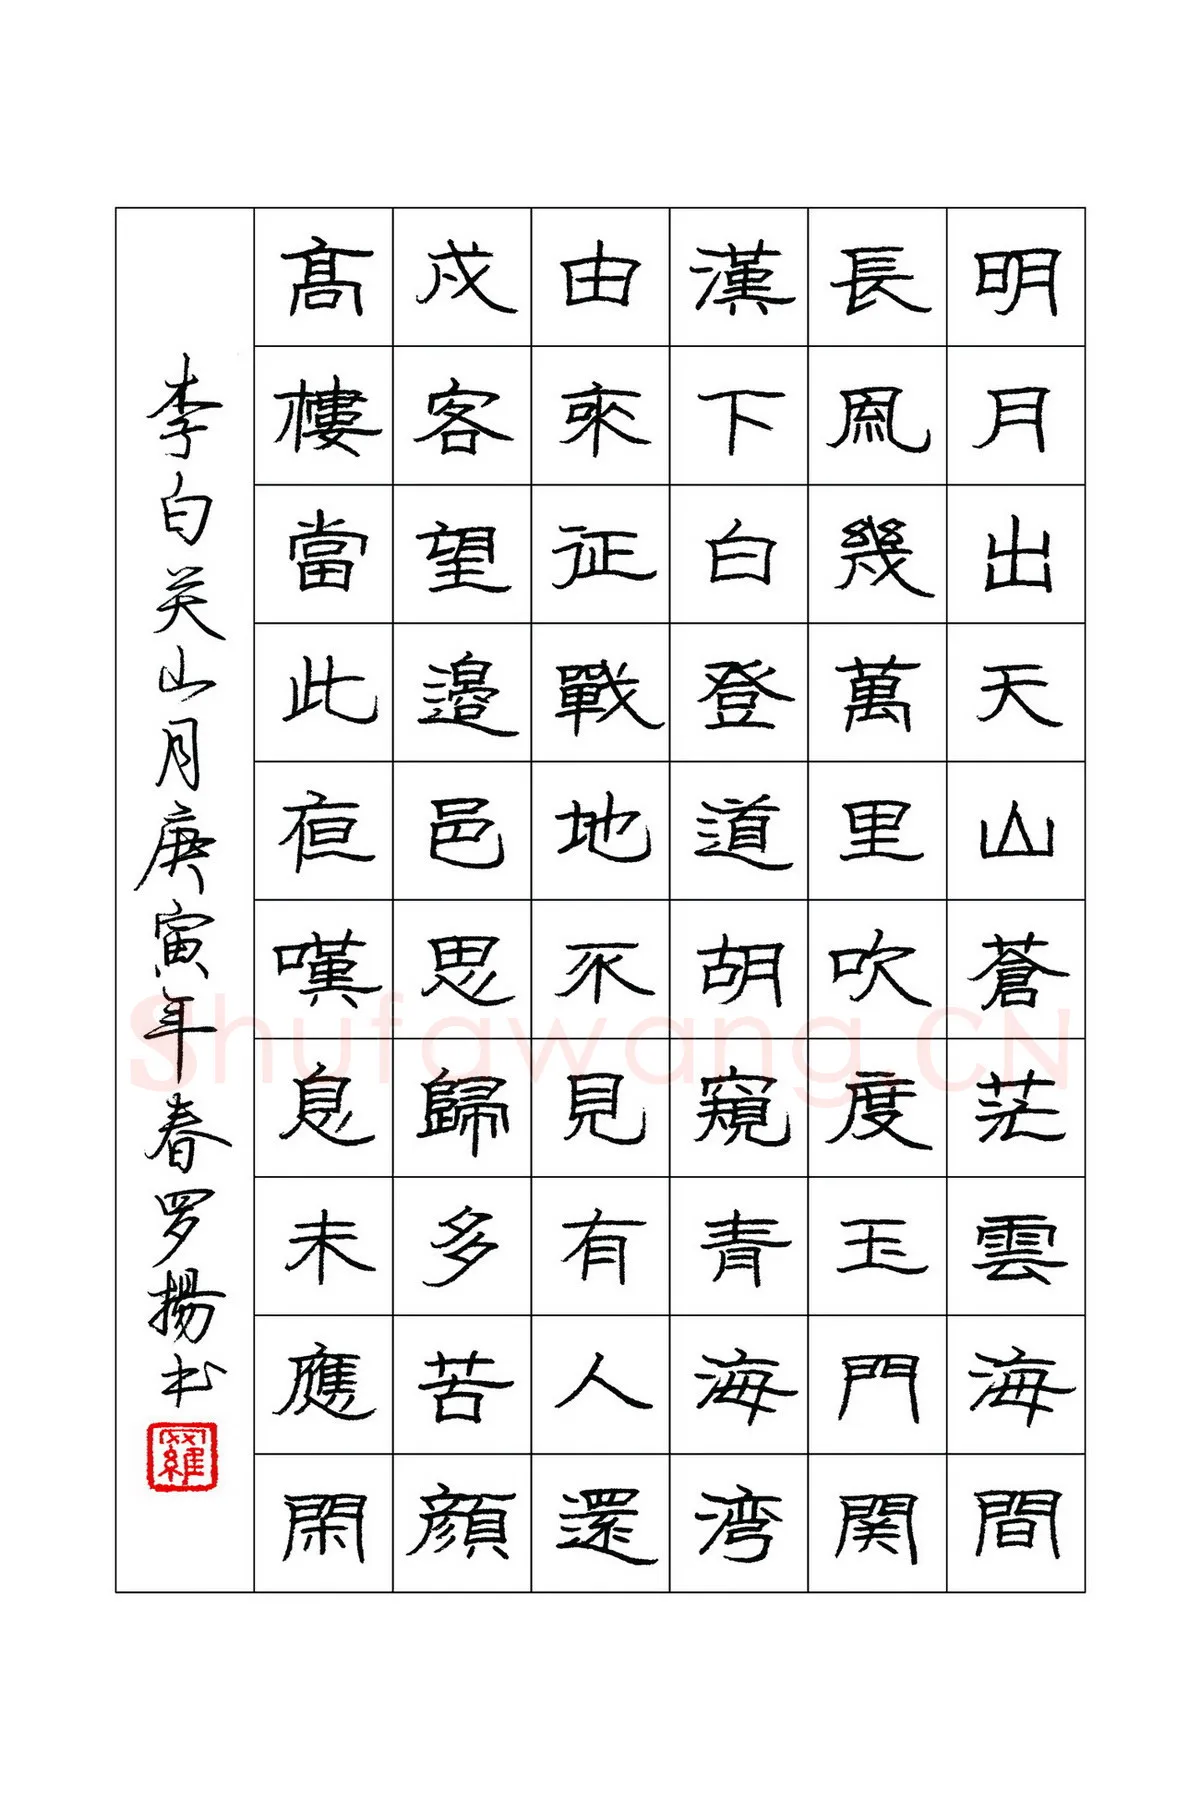 明月出天山蒼茫雲海間
長風幾萬里吹度玉門関
漢下白登道胡窺青海湾
由來征戰地不見有人還
戍客望邊邑思歸多苦顔
髙樓當此夜嘆息未應閑
李白关山月庚寅年春罗揚书
羅
Shufawang.CN